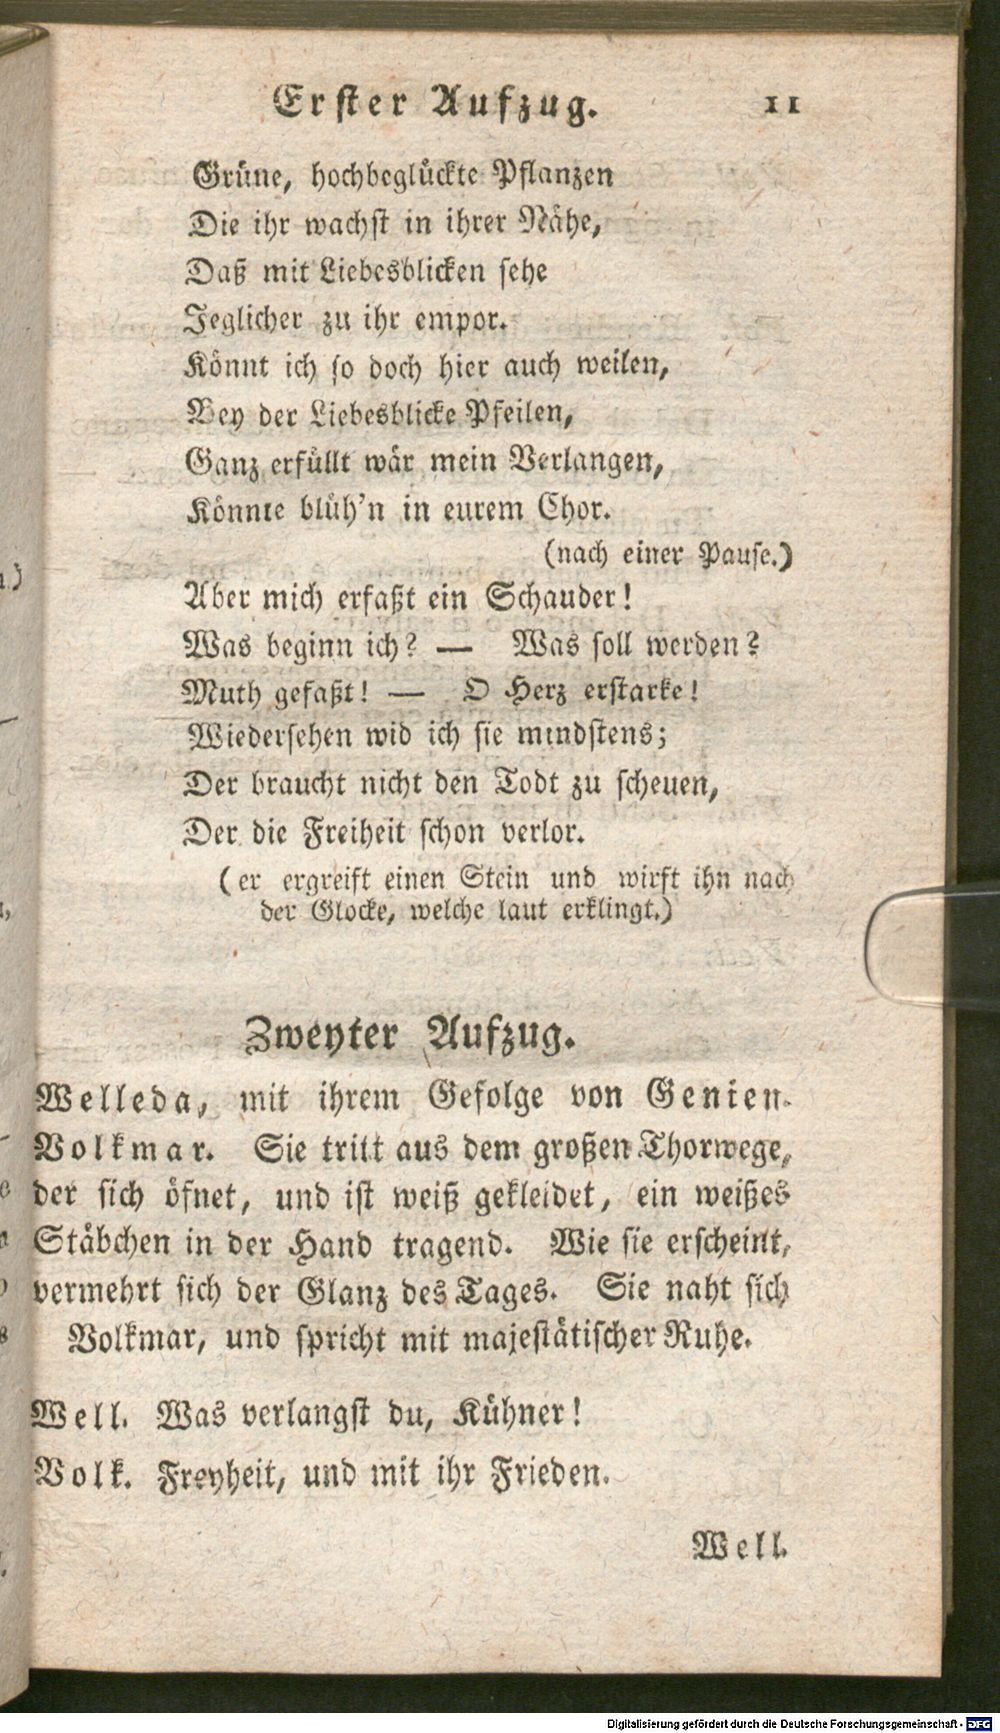 Erster Aufzug. 11
Grüne, hochbeglückte Pflanzen
Die ihr wachst in ihrer Nähe,
Daß mit Liebesblicken sehe
Jeglicher zu ihr empor.
Könnt ich so doch hier auch weilen,
Bey der Liebesblicke Pfeilen,
Ganz erfüllt wär mein Verlangen,
Könnte blüh'n in eurem Chor.
(nach einer Pause.)
Aber mich erfaßt ein Schauder!
Was beginn ich? — Was soll werden?
Muth gefaßt! — O Herz erstarke!
Wiedersehen wid ich sie mindstens;
Der braucht nicht den Todt zu scheuen,
Der die Freiheit schon verlor.
(er ergreift einen Stein und wirft ihn nach
der Glocke, welche laut erklingt.)
Zweyter Aufzug.
Welleda, mit ihrem Gefolge von Genien.
Volkmar. Sie tritt aus dem großen Thorwege,
der sich öfnet, und ist weiß gekleidet, ein weißes
Stäbchen in der Hand tragend. Wie sie erscheint,
vermehrt sich der Glanz des Tages. Sie naht sich
Volkmar, und spricht mit majestätischer Ruhe.
Well. Was verlangst du, Kühner!
Volk. Freyheit, und mit ihr Frieden.
Well.
Digitalisierung gefördert durch die Deutsche Forschungsgemeinschaft - DFG